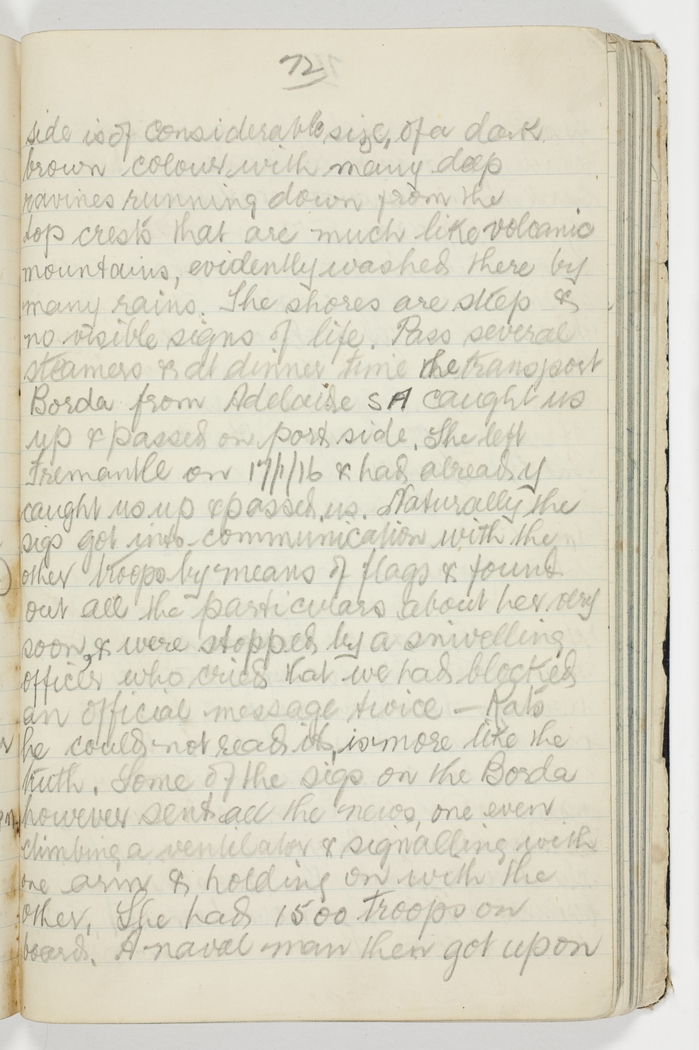 72
side is of considerable size, of a dark
brown colour with many deep
ravines running down from the
top crests that are much like volcanic
mountains, evidently washed there by
many rains. The shores are steep &
no visible signs of life. Pass several
steamers & at dinner time the transport
Borda from Adelaide SA caught us
up & passed on port side. She left
Fremantle on 17/1/16 & had already
caught us up & passed us. Naturally the
sigs got into communication with the
other troops by means of flags & found
out all the particulars about her very
soon, & were stopped by a snivelling
officer who cried that we had blocked
an official message twice — Rats
he could not read it, is more like the
truth. Some of the sigs on the Borda
however sent all the news, one even
climbing a ventilator & signalling with
one arm & holding on with the
other. She had 1500 troops on
board. A naval man then got upon